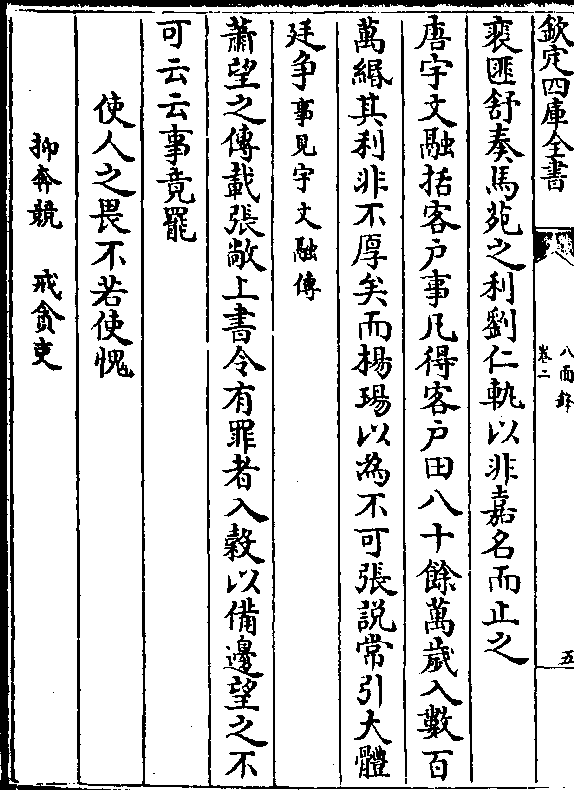 欽定四庫全書
八面鋒
卷二
五
裵匪舒奏馬苑之利劉仁軌以非嘉名而止之
唐宇文融括客户事凡得客户田八十餘萬歲入數百
萬緡其利非不厚矣而楊瑒以為不可張説常引大體
廷争事見宇文融傳
蕭望之傳載張敞上書令有罪者入榖以備邊望之不
可云云事竟罷
使人之畏不若使愧
抑奔競　戒貪吏